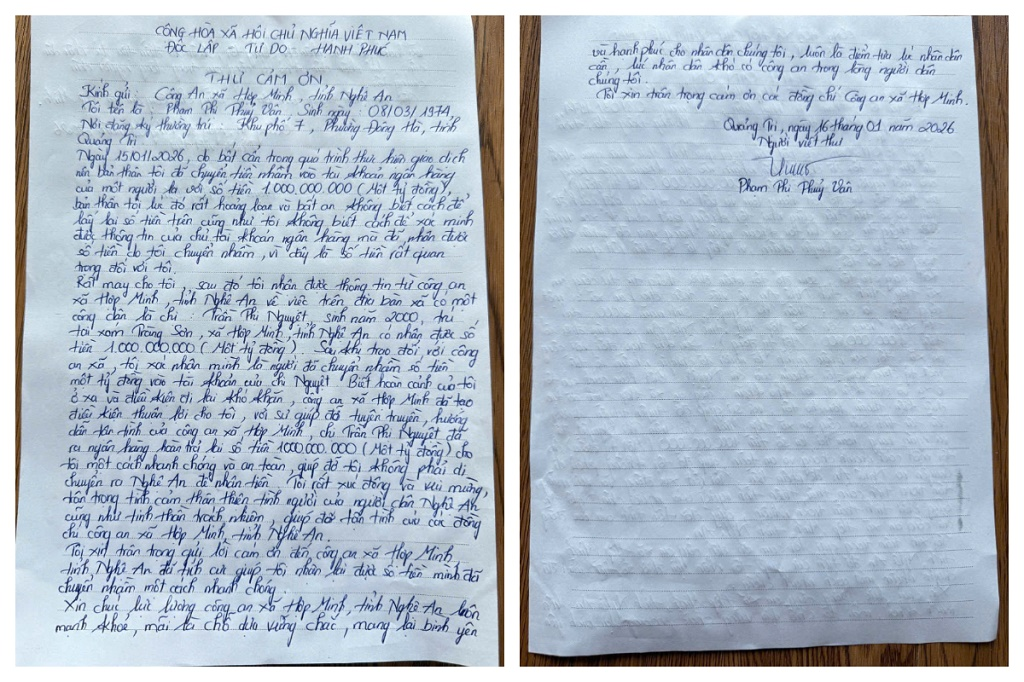 CỘNG HÒA XÃ HỘI CHỦ NGHĨA VIỆT NAM
ĐỘC LẬP - TỰ DO - HẠNH PHÚC
THƯ CẢM ƠN
Kính gửi: Công An xã Hợp Minh, tỉnh Nghệ An
Tôi tên là: Phạm Phi Thuỷ Vân. Sinh ngày 08/03/1974
Nơi đăng ký thường trú: Khu phố 7, Phường Đông Hà, tỉnh
Quảng Trị
Ngày 15/01/2026, do bất cẩn trong quá trình thực hiện giao dịch
nên bản thân tôi đã chuyển tiền nhầm vào tài khoản ngân hàng
của một người lạ với số tiền 1.000.000.000 (Một tỷ đồng),
bản thân tôi lúc đó rất hoảng loạn và bất an không biết cách để
lấy lại số tiền trên cũng như tôi không biết cách để xác minh
được thông tin của chủ tài khoản ngân hàng mà đã nhận được
số tiền do tôi chuyển nhầm, vì đây là số tiền rất quan
trọng đối với tôi.
Rất may cho tôi, sau đó tôi nhận được thông tin từ công an
xã Hợp Minh, tỉnh Nghệ An về việc trên địa bàn xã có một
công dân là chị: Trần Phi Nguyệt, sinh năm 2000, trú
tại xóm Tràng Sơn, xã Hợp Minh, tỉnh Nghệ An có nhận được số
tiền 1.000.000.000 (Một tỷ đồng). Sau khi trao đổi với công
an xã, tôi xác nhận mình là người đã chuyển nhầm số tiền
một tỷ đồng vào tài khoản của chị Nguyệt. Biết hoàn cảnh của tôi
ở xa và điều kiện đi lại khó khăn, công an xã Hợp Minh đã tạo
điều kiện thuận lợi cho tôi, với sự giúp đỡ tuyên truyền, hướng
dẫn tận tình của công an xã Hợp Minh, chị Trần Phi Nguyệt đã
ra ngân hàng hoàn trả lại số tiền 1000.000.000 (Một tỷ đồng) cho
tôi một cách nhanh chóng và an toàn, giúp đỡ tôi không phải di
chuyển ra Nghệ An để nhận tiền. Tôi rất xúc động và vui mừng,
trân trọng tình cảm thân thiện tình người của người dân Nghệ An
cũng như tinh thần trách nhiệm, giúp đỡ tận tình của các đồng
chí công an xã Hợp Minh, tỉnh Nghệ An.
Tôi xin trân trọng gửi lời cảm ơn đến công an xã Hợp Minh,
tỉnh Nghệ An đã tích cực giúp tôi nhận lại được số tiền mình đã
chuyển nhầm một cách nhanh chóng.
Xin chúc lực lượng công an xã Hợp Minh, tỉnh Nghệ An luôn
mạnh khoẻ, mãi là chỗ dựa vững chắc, mang lại bình yên
và hạnh phúc cho nhân dân chúng tôi, luôn là điểm tựa lúc nhân dân
cần, lúc nhân dân khó có công an trong lòng người dân
chúng tôi.
Tôi xin trân trọng cảm ơn các đồng chí Công an xã Hợp Minh.
Quảng Trị, ngày 16 tháng 01 năm 2026
Người viết thư
Phạm Phi Thuỷ Vân